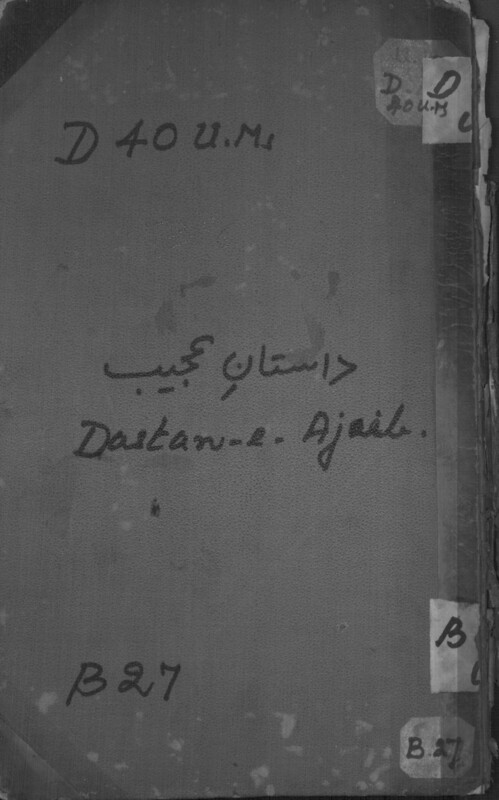 D 40 U.M.
D
D
40 U.M
داستانِ عجیب
Dastan-e-Ajaib.
B 27
B
B 27